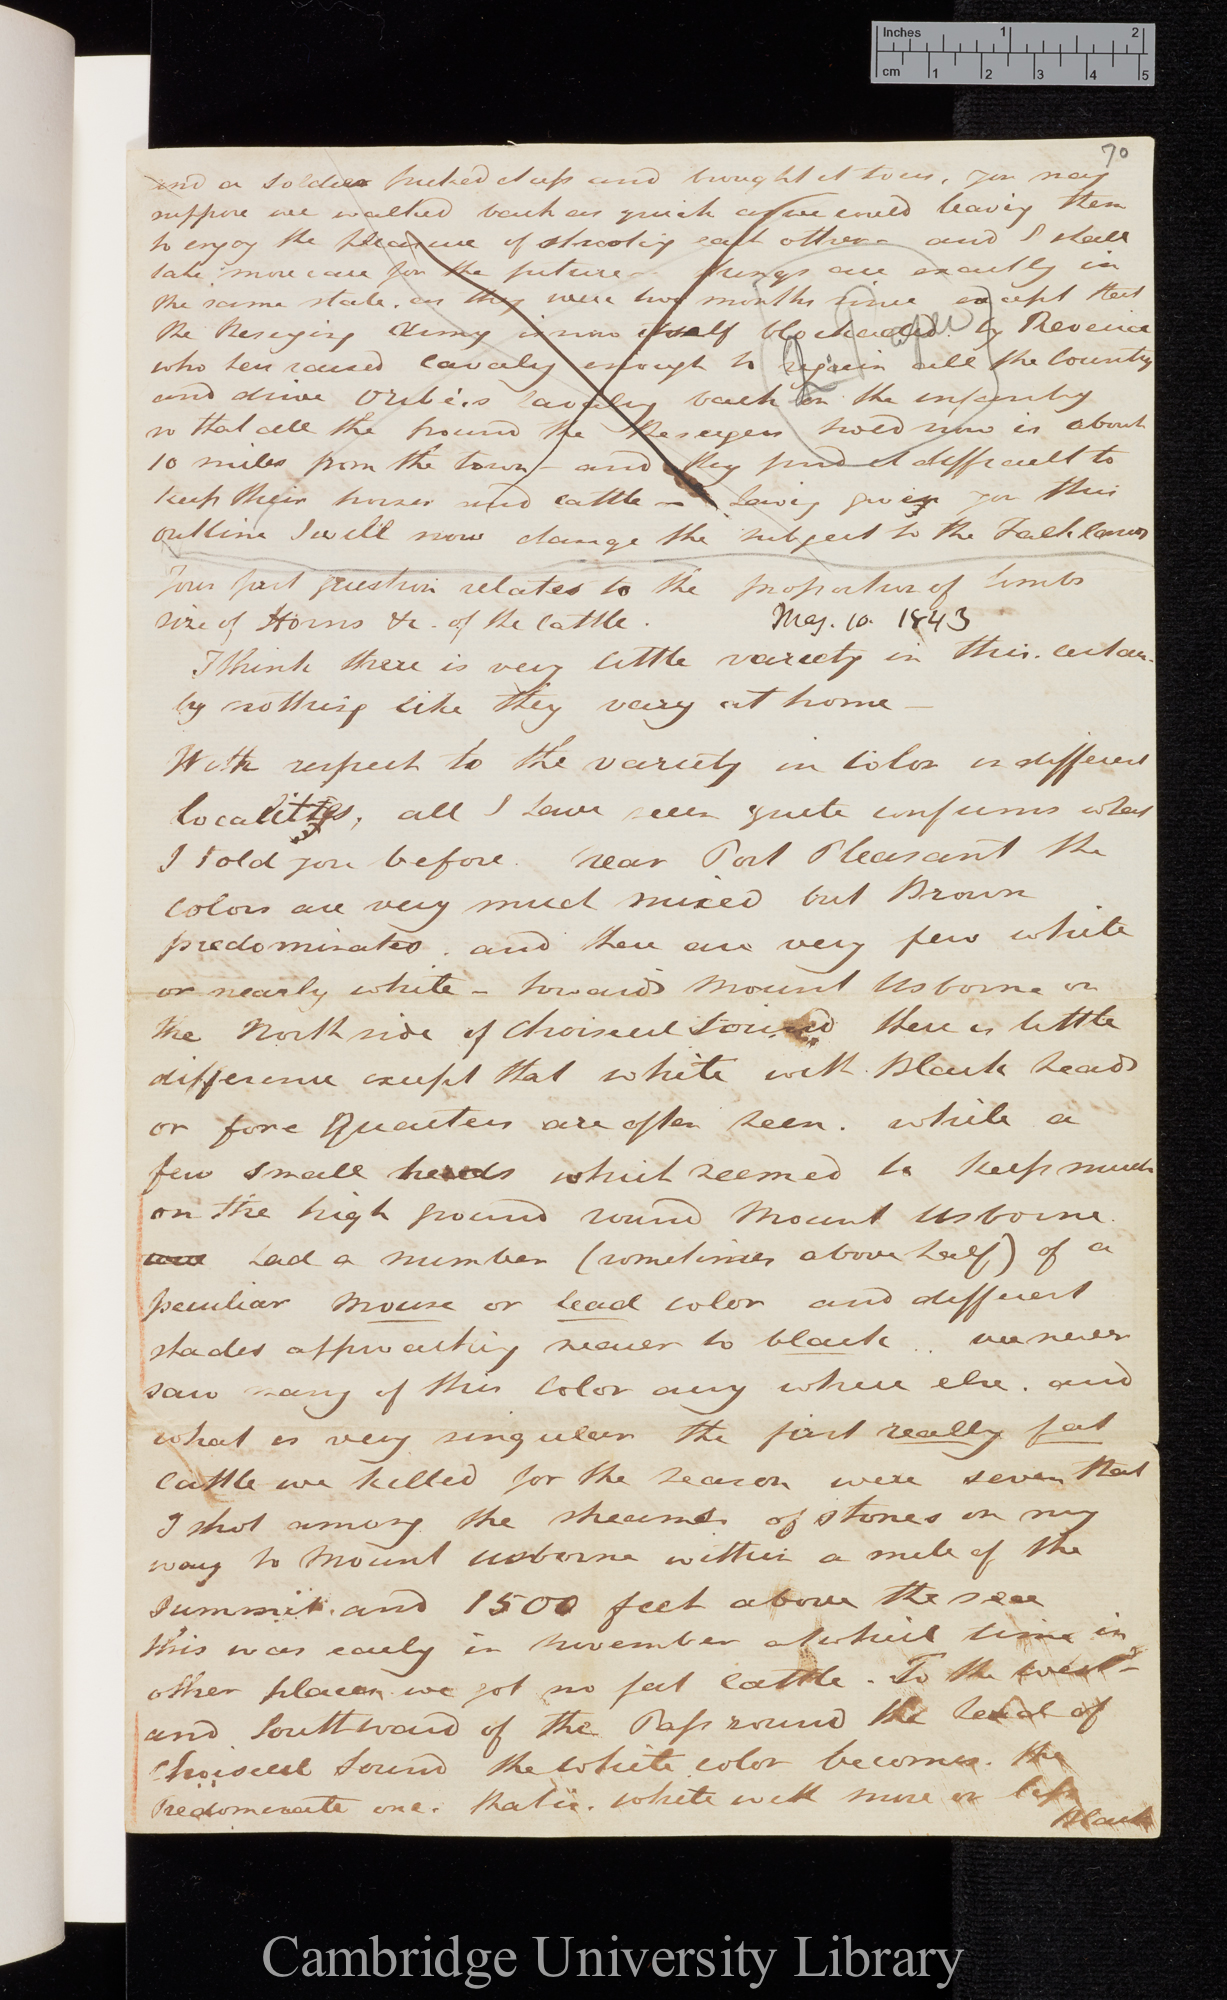 Inches 1 2
cm 1 2 3 4 5
70
and a soldier picked it up and brought it to us, you may
suppose we walked back as quick as we could leaving them
to enjoy the pleasure of shooting each other – and I shall
take more care for the future – things are exactly in
the same state as they were two months since except that
the Beseiging Army is now itself blockaded by Reveira
who has raised Cavalry enough to regain all the Country
and drive Oribe's Cavalry back on the infantry
so that all the ground the Beseigers hold now is about
10 miles from the town – and they find it difficult to
keep their horses and cattle – having given you this
outline I will now change the subject to the Falklands
Your first question relates to the proportion of limbs
size of Horns &c. of the Cattle.
May. 10. 1843
I think there is very little variety in this. certain-
ly nothing like they vary at home –
With respect to the variety in Color in different
localities, all I have seen quite confirms what
I told you before. near Port Pleasant the
Colors are very much mixed but Brown
predominates. and there are very few white
or nearly white – towards Mount Usborne on
the North side of Choiseul Sound there is little
difference except that white with Black heads
or fore Quarters are often seen. while a
few small herds which seemed to keep much
on the high ground round Mount Usborne
had a number (sometimes above half) of a
peculiar Mouse or lead color and different
shades approaching nearer to black .. we never
saw many of this Color any where else. and
what is very singular the first really fat
Cattle we killed for the season were seven that
I shot among the streams of stones on my
way to Mount Usborne within a mile of the
Summit. and 1500 feet above the sea
this was early in November at which time in
other places we got no fat Cattle. To the west-
and Southward of the Pass round the head of
Choiseul Sound the white color becomes. the
Predominate one. that is. white with more or less
Black
Cambridge University Library